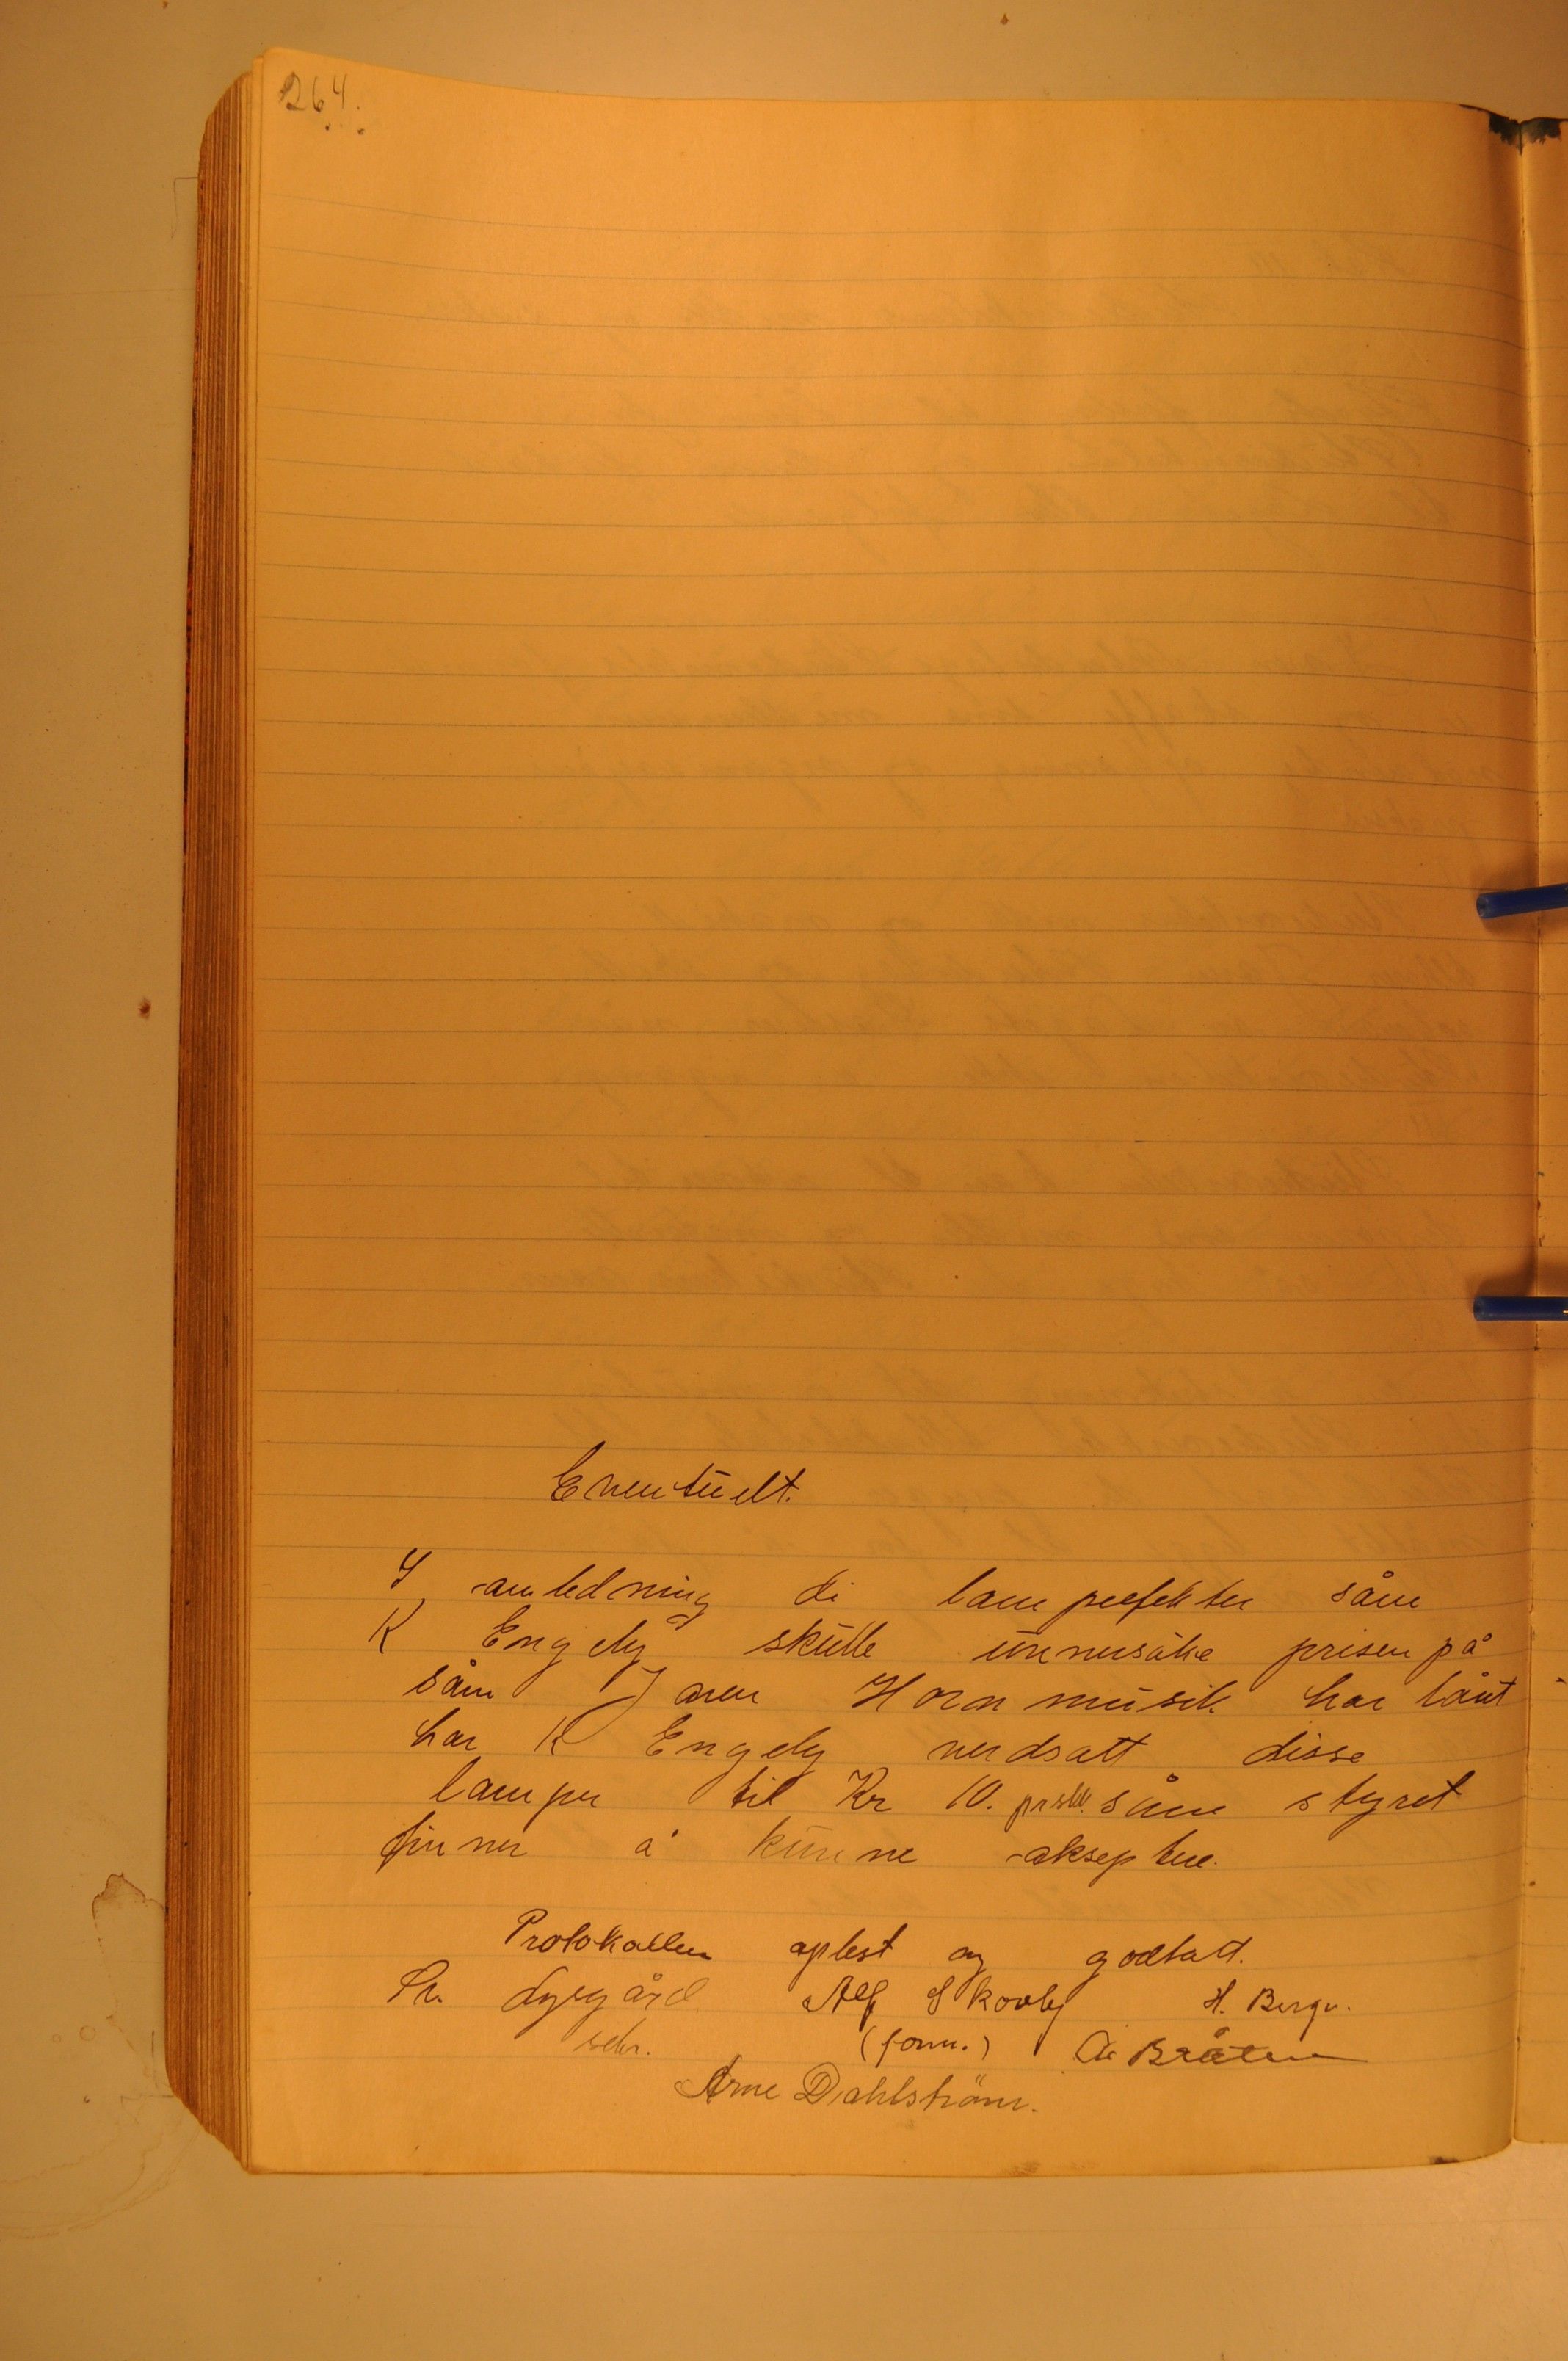 264.
Eventuelt.
I anledning di lampeefekter såm
K Engeby skulle unnersøke prisen på
såm Jaren Hornmusik har lånt
har K Engeby verdsatt disse
lamper til Kr 10. pr stk. såm styret
finner å kunne akseptere.
Protokollen oplest og godtatt.
Lysgård Alf Skovly H. Berge.
sekr. (form.) Bråten
Arne Dahlström.